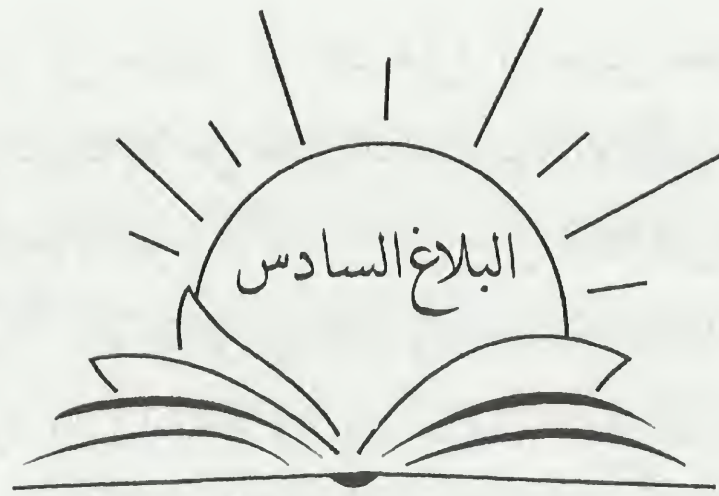 البلاغ السادس